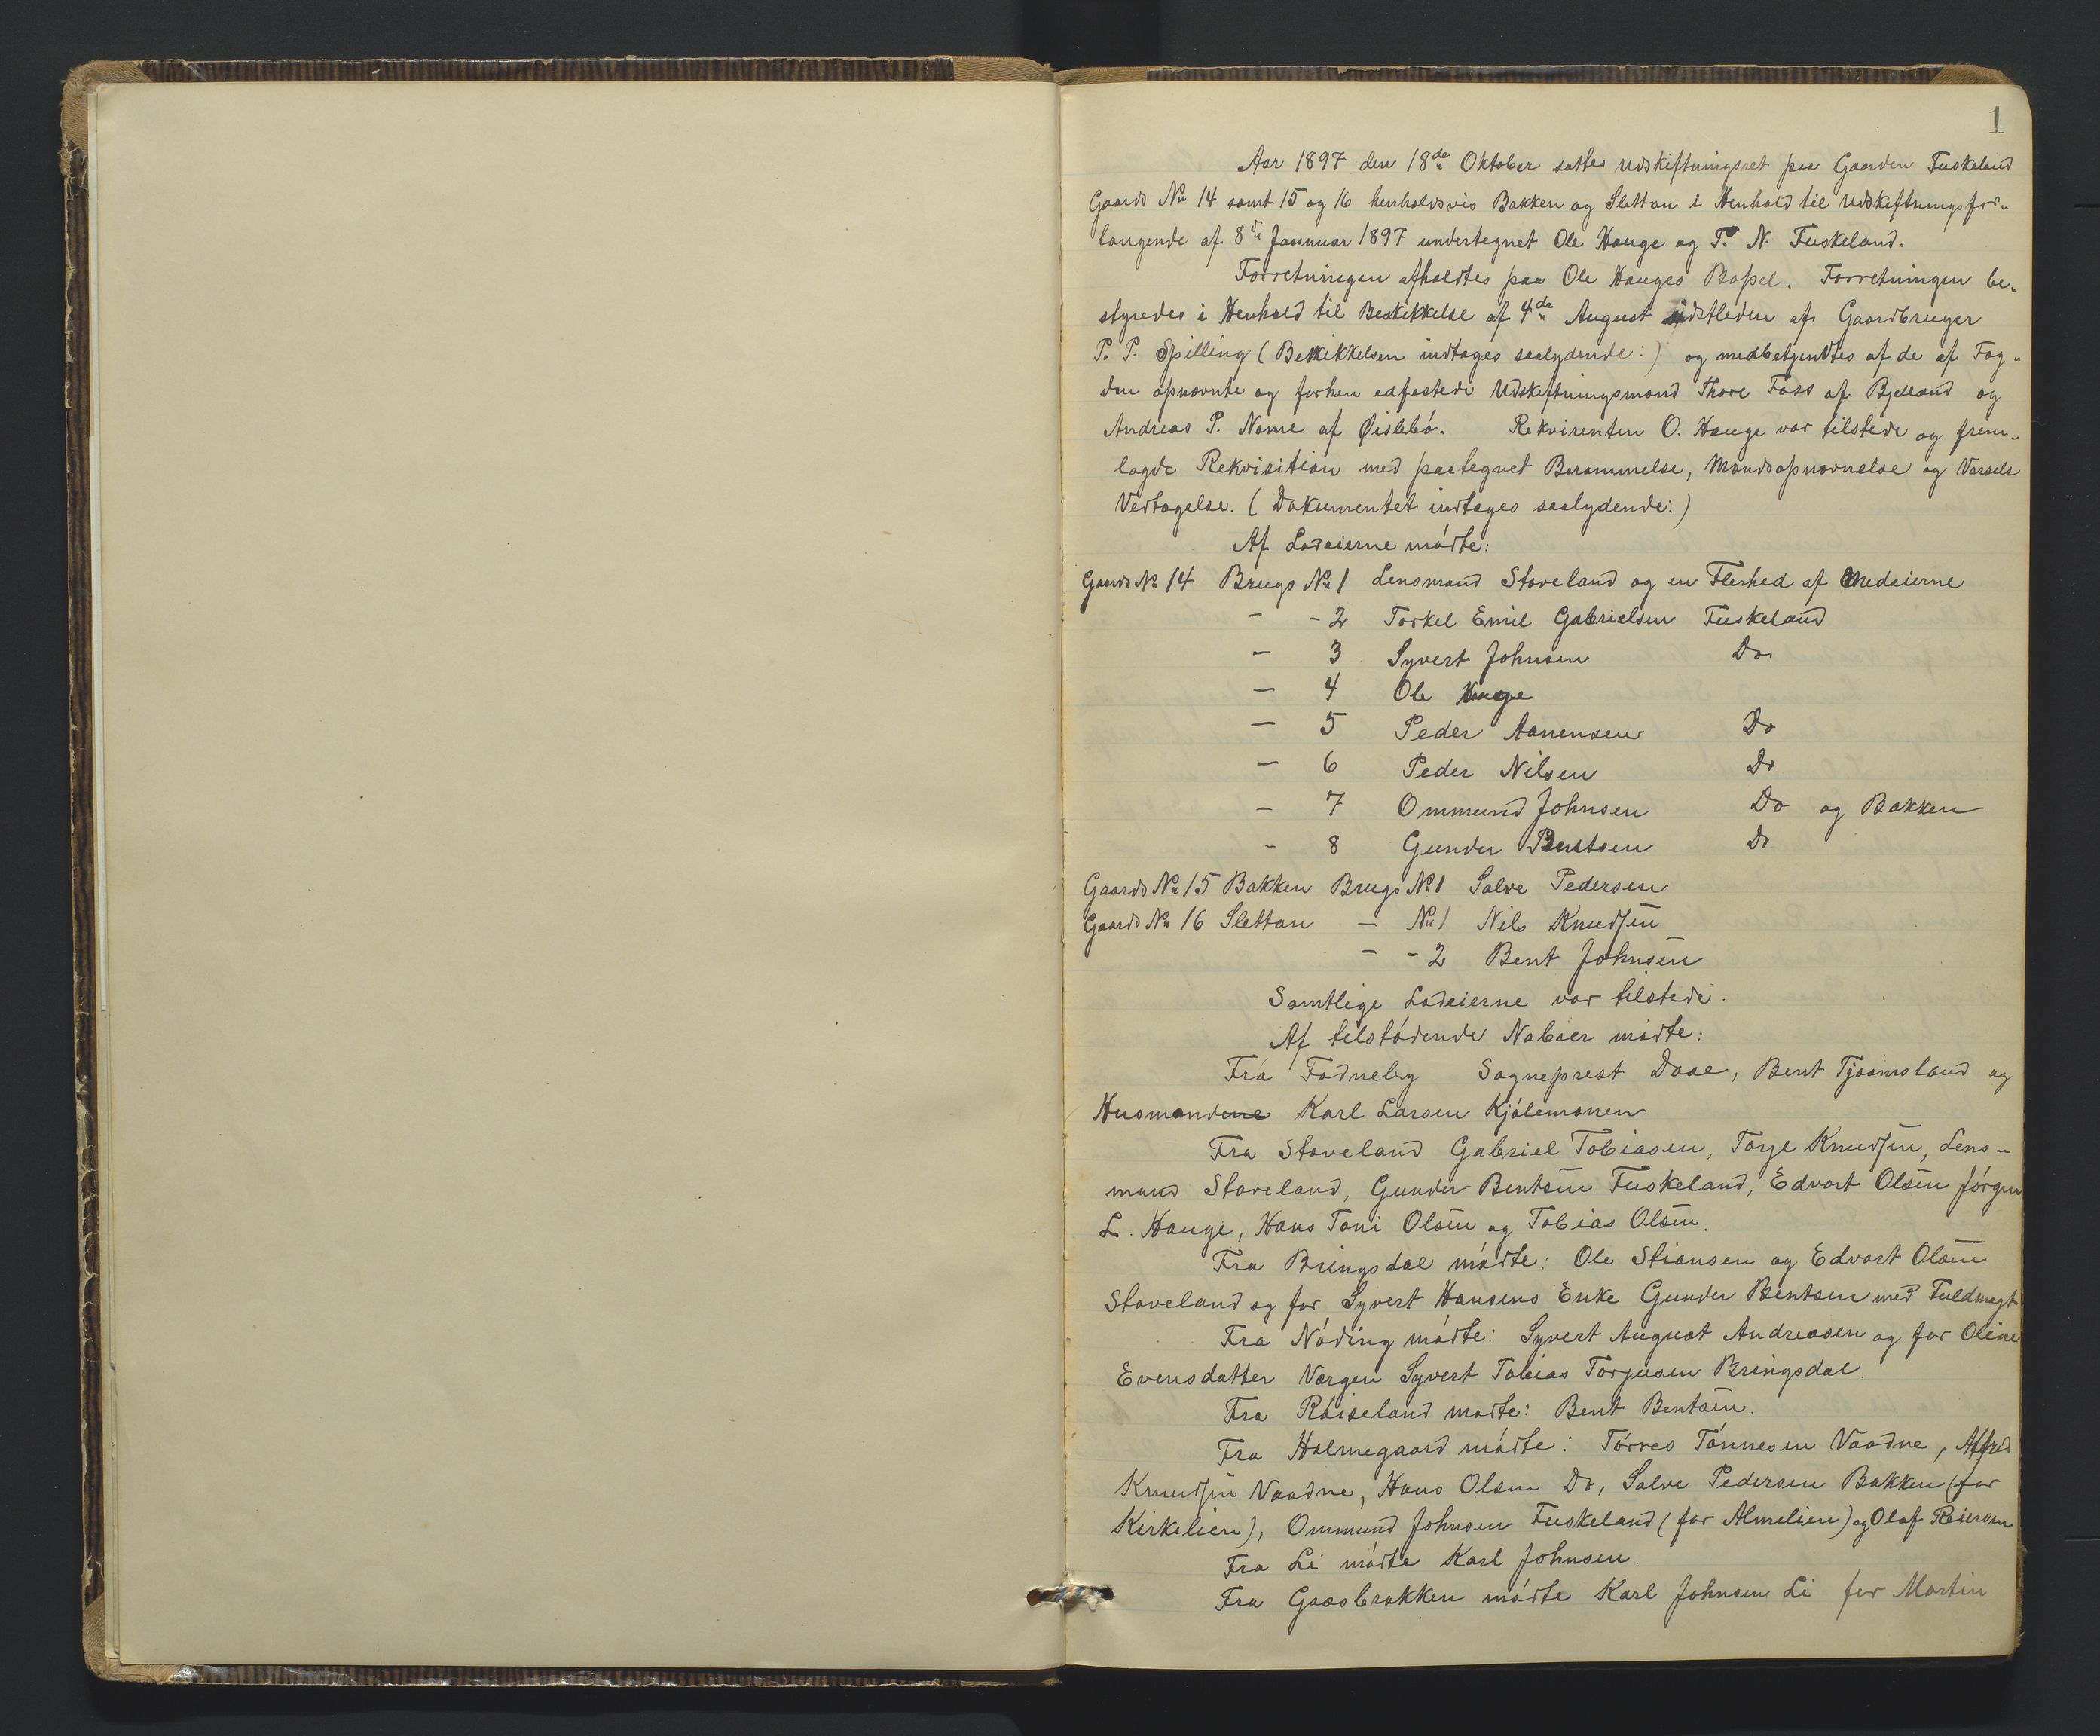 1
Aar 1897 den 18de Oktober sattes Udskiftningsret paa Gaarden Fuskeland
Gaards No 14 samt 15 og 16 henholdsvis Bakken og Slettan i Henhold til Udskiftningsfor-
langende af 8de Januar 1897 undertegnet Ole Hauge og P. N. Fuskeland.
Forretningen afholdtes paa Ole Hauges Bopel. Forretningen be-
styredes i Henhold til Beskikkelse af 4de August sidstleden af Gaardbruger
P. P. Spilling (Beskikkelsen indtages saalydende:) og medbetjentes af de af Fog-
den opnævnte og forhen edfestede Udskiftningsmænd Thore Foss af Bjelland og
Andreas P. Nome af Øislebø. Rekvirenten O. Hauge var tilstede og frem-
lagde Rekvisition med paategnet Berammelse, Mandsopnævnelse og Varsels
Vedtagelse. (Dokumentet indtages saalydende:)
Af Lodeierne mødte:
Gaards No 14 Brugs No 1 Lensmand Stoveland og en Flerhed af Medeierne
- - 2 Torkel Emil Gabrielsen Fuskeland
- 3 Syvert Johnsen Do
- 4 Ole Hauge
- 5 Peder Aanensen Do
- 6 Peder Nilsen Do
- 7 Ommund Johnsen Do og Bakken
- 8 Gunder Bentsen Do
Gaards No 15 Bakken Brugs No 1 Salve Pedersen
Gaards No 16 Slettan - No 1 Nils Knudsen
- - 2 Bent Johnsen
Samtlige Lodeierne var tilstede.
Af tilstødende Naboer mødte:
Fra Fodneberg Sogneprest Daae, Bent Tjaamsland og
Husmandene Karl Larsen Kjølemonen
Fra Stoveland Gabriel Tobiasen, Torje Knudsen, Lens-
mand Stoveland, Gunder Bentsen Fuskeland, Edvart Olsen Jørgen
L. Hauge, Hans Toni Olsen og Tobias Olsen.
Fra Bringsdal mødte: Ole Stiansen og Edvart Olsen
Stoveland og for Syvert Hansens Enke Gunder Bentsen med Fuldmagt
Fra Nøding mødte: Syvert August Andreasen og for Oline
Evensdatter Værgen Syvert Tobias Torjusen Bringsdal.
Fra Røiseland mødte: Bent Bentsen.
Fra Holmegaard mødte: Tørres Tønnesen Vaadne, Alfred
Knudsen Vaadne, Hans Olsen Do, Salve Pedersen Bakken (for
Kirkelien), Ommund Johnsen Fuskeland (for Almelien) og Olaf Reiersen
Fra Li mødte Karl Johnsen.
Fra Græsbrækken mødte Karl Johnsen Li for Martin